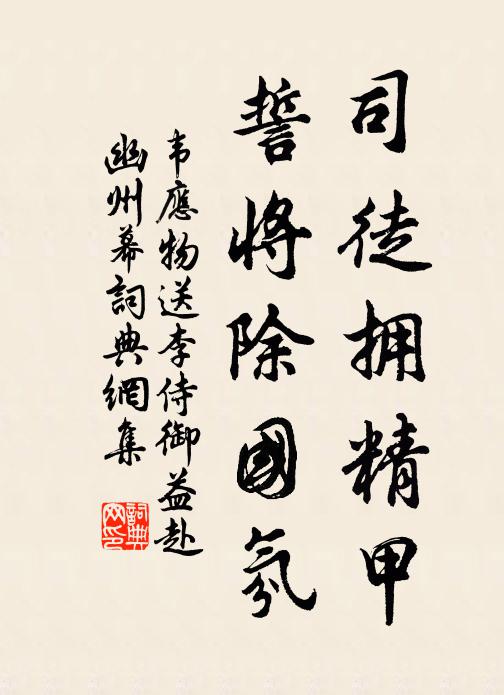 司徒拥精甲
誓将除國氛
韦應物送李侍御益赴
幽州幕詞典網集
詞典
网印